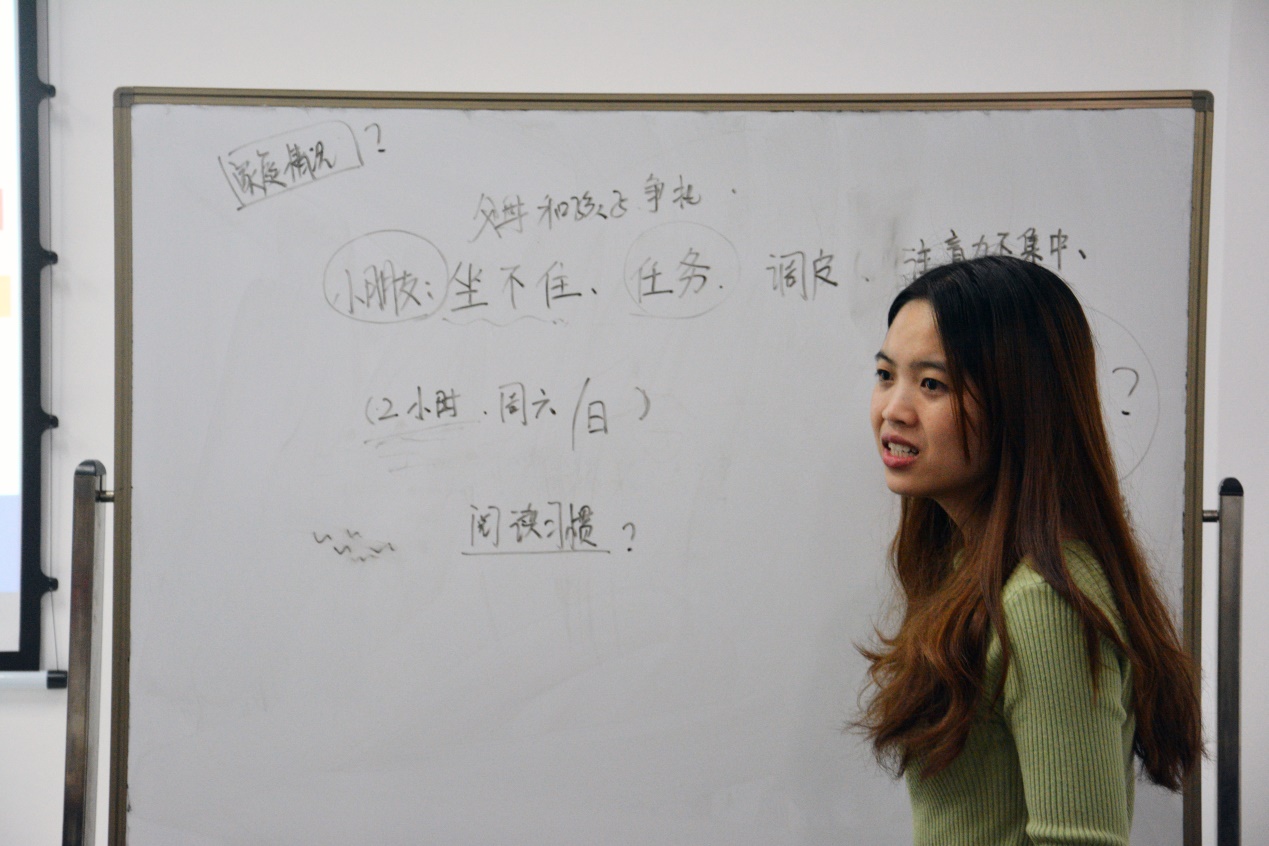 家庭情况？
父母和孩子争执.
小朋友：坐不住、任务. 调皮. 注意力不集中、
？
(2小时.周六/日)
阅读习惯？